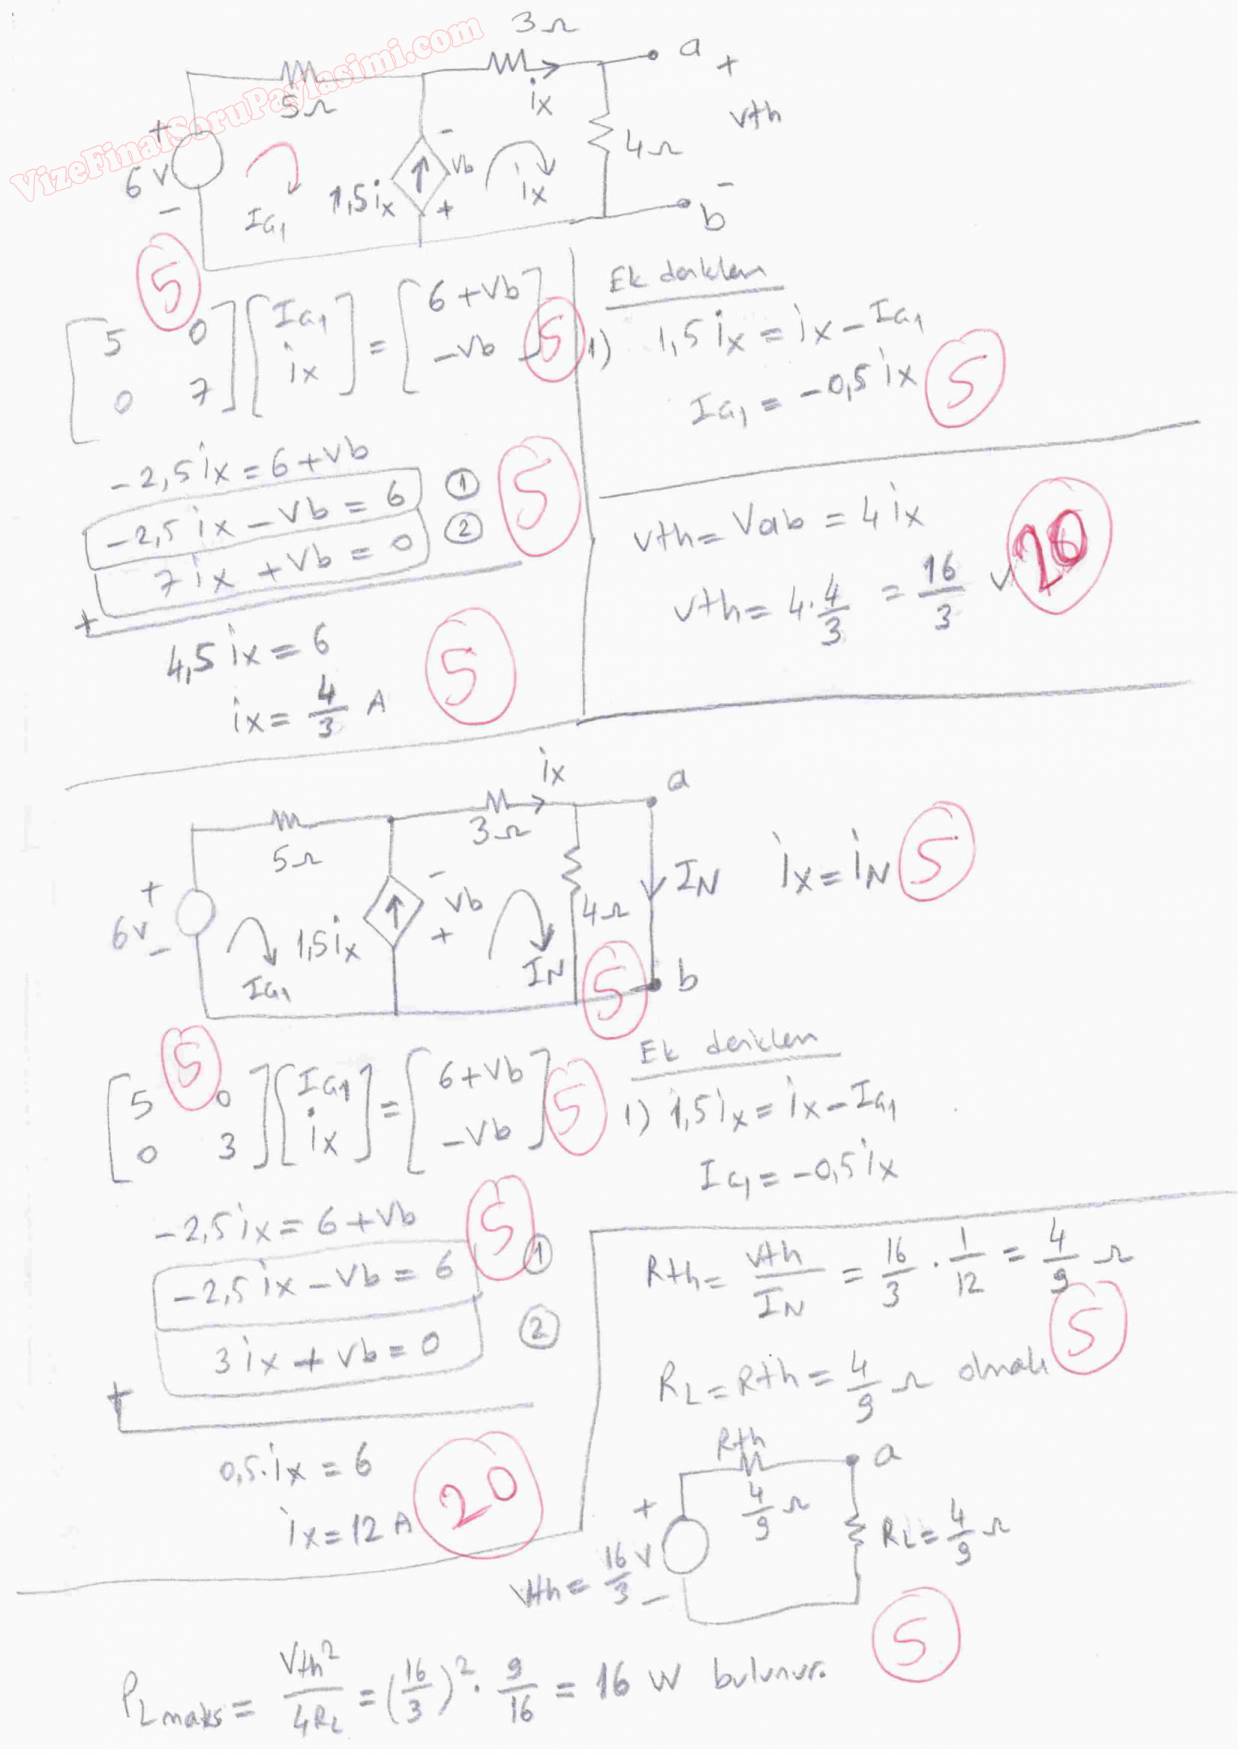 VizeFinalSoruPaylasimi.com
3Ω
a
+
5Ω
ix
vth
+
6V
-
Ia1
1,5ix
-
Vb
+
ix
4Ω
-
b
5
[5 0
0 7] [Ia1
ix] = [6+Vb
-Vb] 5
Ek denklem
1) 1,5ix = ix - Ia1
Ia1 = -0,5ix 5
-2,5ix = 6+Vb
-2,5ix - Vb = 6 ①
7ix + Vb = 0 ②
5
+
4,5ix = 6
ix = 4/3 A
5
vth = Vab = 4ix
vth = 4·4/3 = 16/3 V
20
ix
a
5Ω
3Ω
+
6V
-
Ia1
1,5ix
-
Vb
+
IN
4Ω
IN
b
ix = iN 5
5
5
[5 0
0 3] [Ia1
ix] = [6+Vb
-Vb] 5
Ek denklem
1) 1,5ix = ix - Ia1
Ia1 = -0,5ix
-2,5ix = 6+Vb
-2,5ix - Vb = 6 ①
3ix + Vb = 0 ②
5
+
0,5·ix = 6
ix = 12 A
20
Rth = Vth/IN = 16/3 · 1/12 = 4/9 Ω
5
RL = Rth = 4/9 Ω olmalı
Rth
4/9 Ω
a
+
Vth = 16/3 V
-
RL = 4/9 Ω
5
PLmaks = Vth²/4RL = (16/3)² · 9/16 = 16 W bulunur.